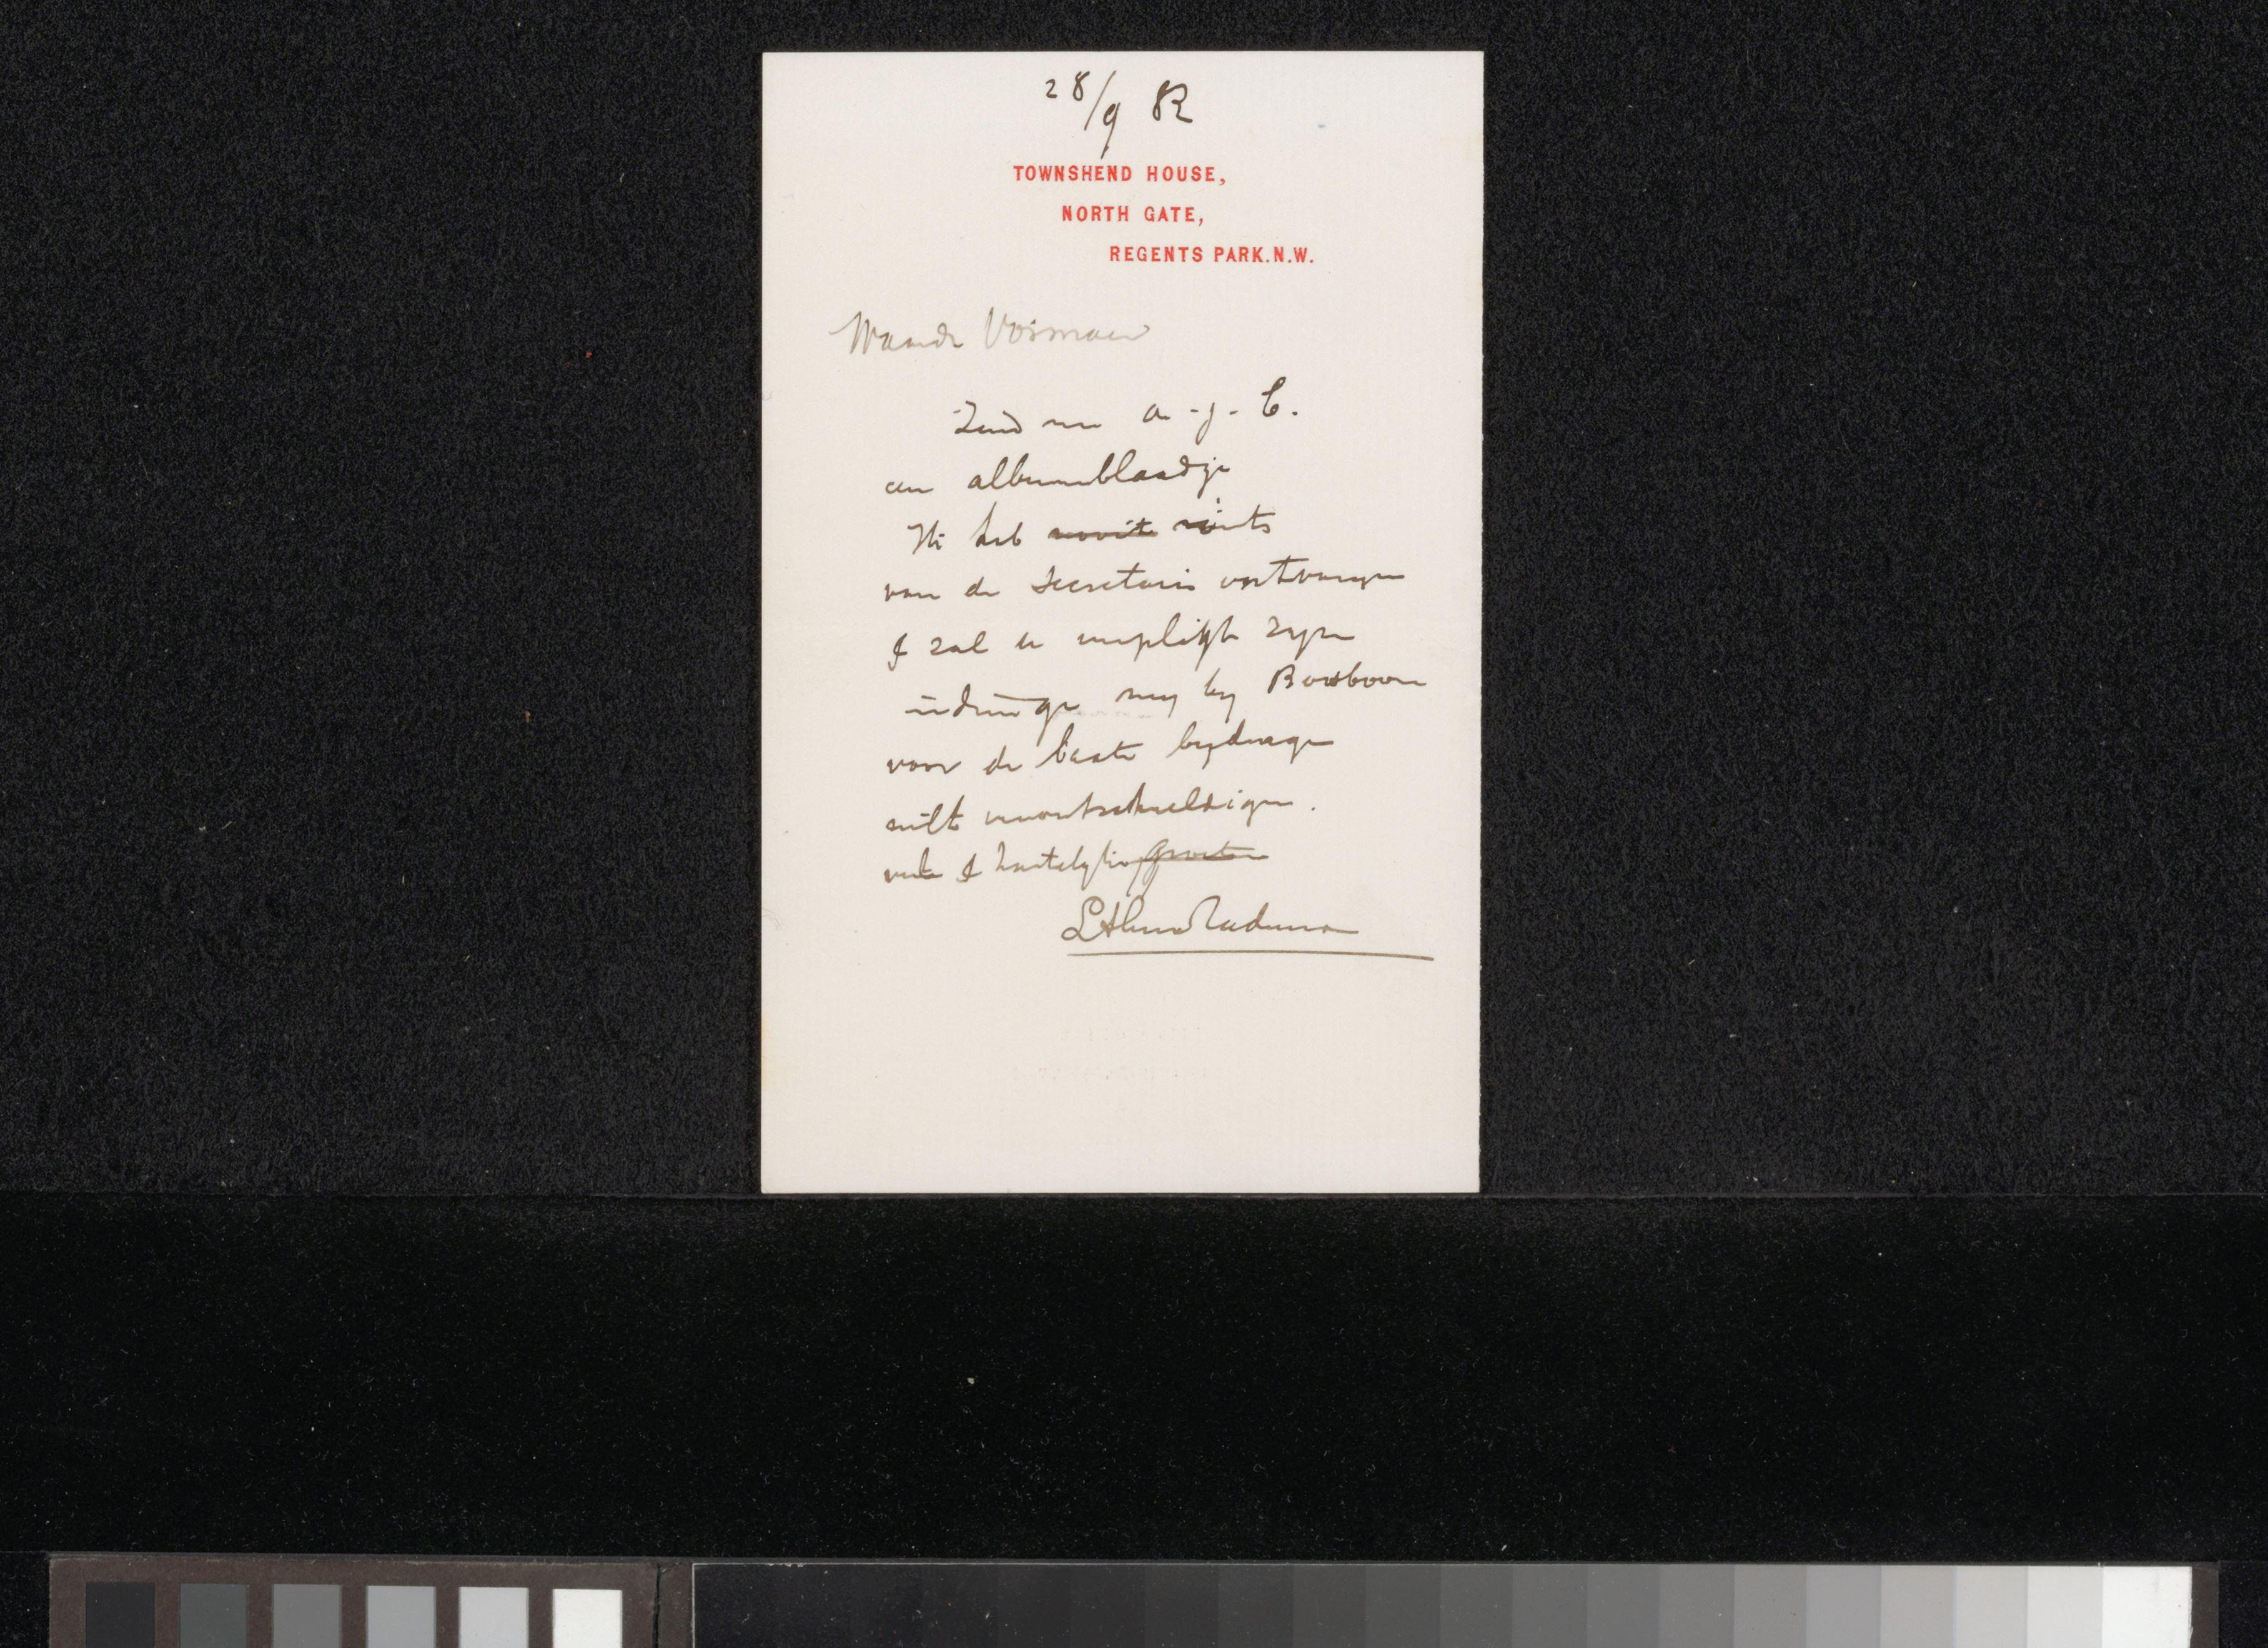 28/9 82
TOWNSHEND HOUSE,
NORTH GATE,
REGENTS PARK.N.W.
Waarde Vosmaer
Zend me a.j.b.
een albumblaadje
Ik heb nooit niets
van de Secretaris ontvangen
I zal u verpligt zyn
indien ge my by Bosboom
voor de beste bydrage
wilt verontschuldigen.
vele I hartelyke groeten
L Alma Tadema